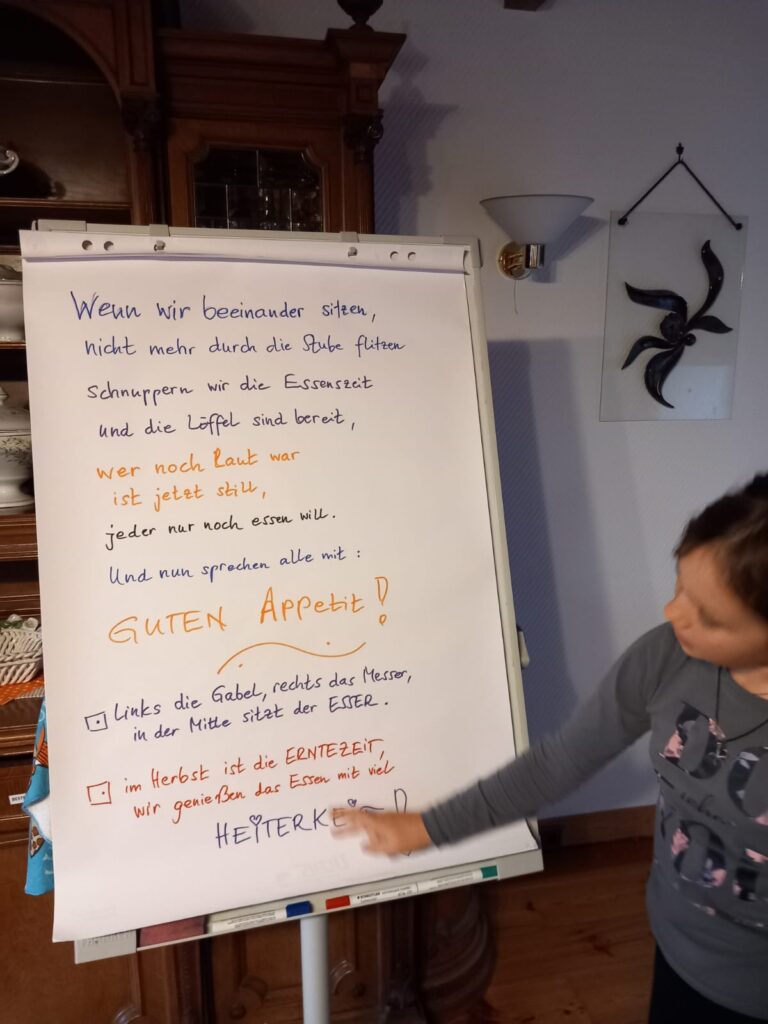 Wenn wir beeinander sitzen,
nicht mehr durch die Stube flitzen
schnuppern wir die Essenszeit
und die Löffel sind bereit,
wer noch laut war
ist jetzt still,
jeder nur noch essen will.
Und nun sprechen alle mit:
GUTEN Appetit!
Links die Gabel, rechts das Messer,
in der Mitte sitzt der ESSER.
im Herbst ist die ERNTEZEIT,
wir genießen das Essen mit viel